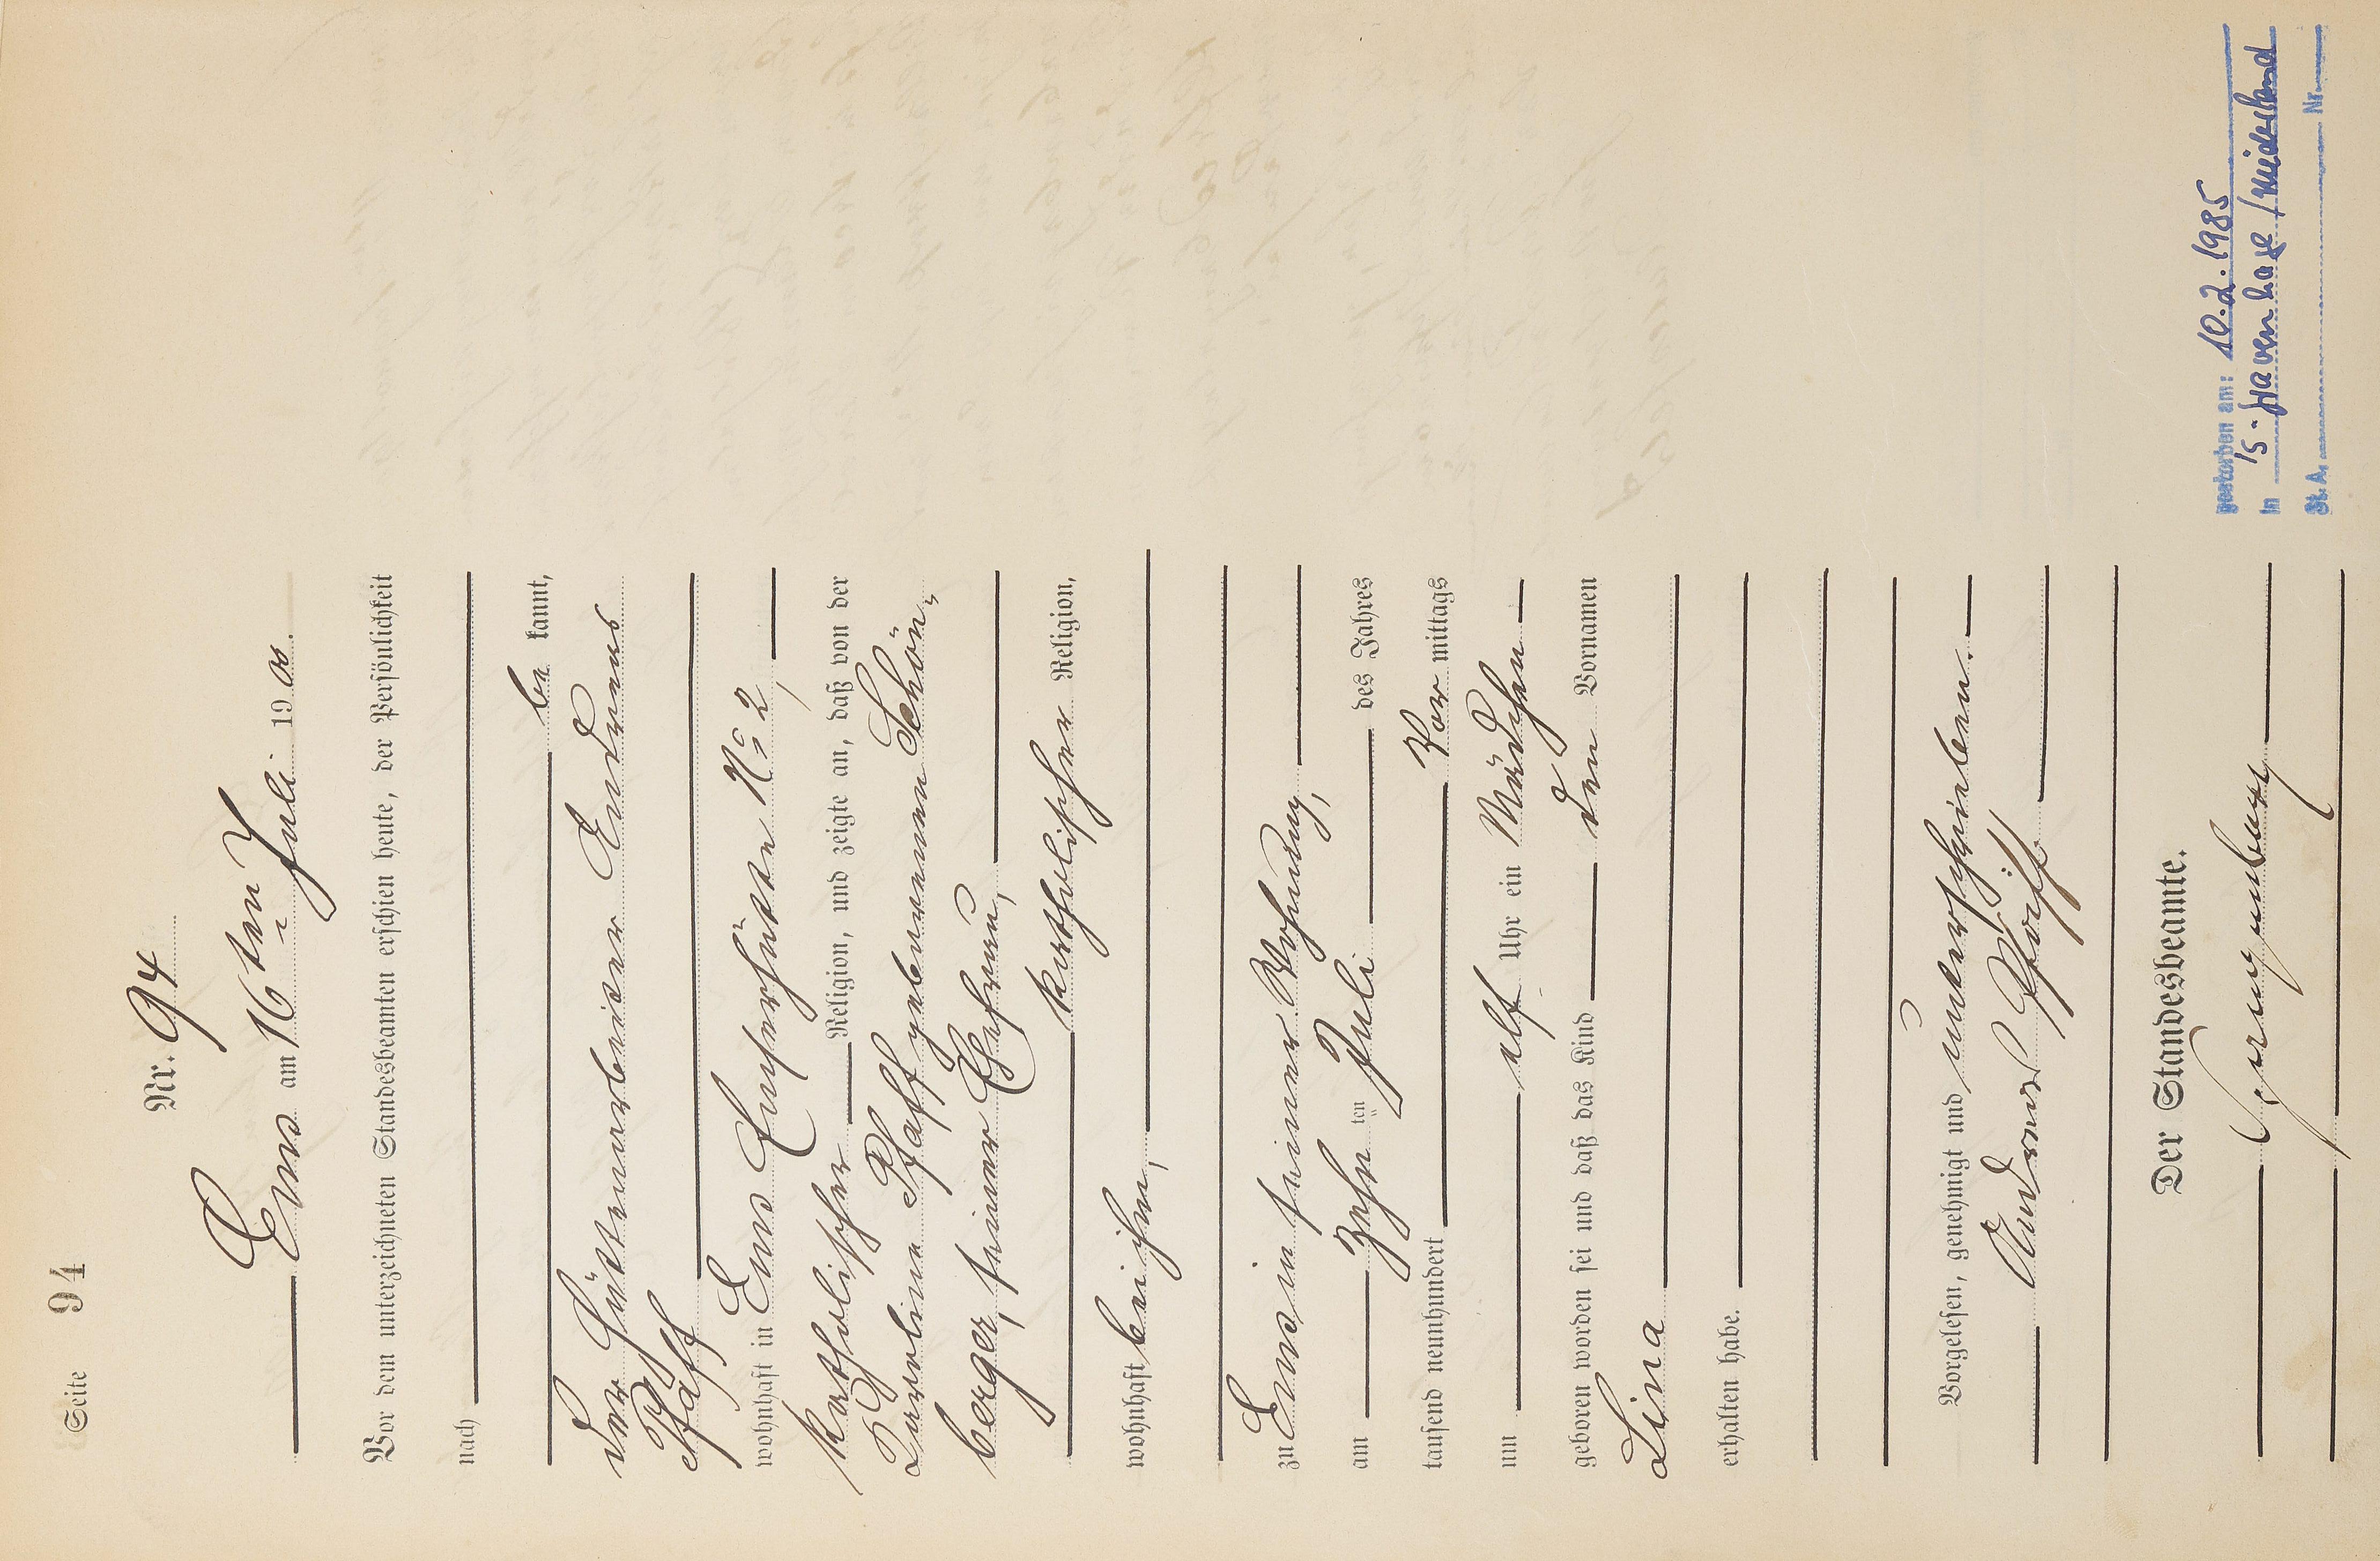 Seite 94
Nr. 94
Ems am 16ten Juli 1900.
Vor dem unterzeichneten Standesbeamten erschien heute, der Persönlichkeit
nach
be kannt,
der Hüttenarbeiter Andreas
Pfaff
wohnhaft in Ems Emserhütte No 2,
katholischer Religion, und zeigte an, daß von der
Karoline Pfaff geborenen Schön-
berger, seiner Ehefrau,
katholischer Religion,
wohnhaft bei ihm,
zu Ems in seiner Wohnung,
am Zehn ten Juli des Jahres
tausend neunhundert Vor mittags
um elf Uhr ein Mädchen
geboren worden sei und daß das Kind den Vornamen
Lina
erhalten habe.
Vorgelesen, genehmigt und unterschrieben.
Andreas Pfaff
Der Standesbeamte.
gestorben am: 10.2.1985
in 's-Gravenhage/Niederland
St. A. Nr.